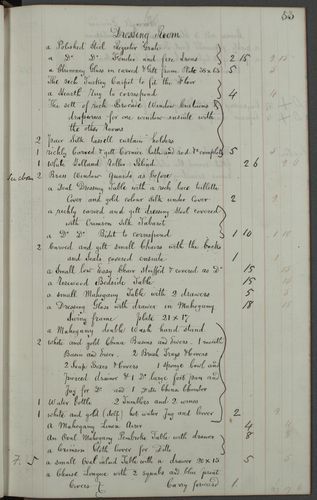 53
Dressing Room
a Polished Steel Register Grate
a Do Do Fender and fire Irons 2 15
a Chimney Glass in carved & Gilt frame Plate 5
The rich Turkey Carpet to fit the Floor
a Hearth Rug to correspond 4
The sett of rich Brocade Window Curtains &
draperies for one window ensuite with
the other Rooms
2 pair Silk tassell curtain holders
1 richly carved & gilt Cornice lath and rod & complete 5
1 White Holland Roller Blind 2 6
2 Brass Window Guards as before
a Deal Dressing Table with a rich lace toilette
Cover and gold colour Silk under Cover 2
a richly carved and gilt dressing Stool covered
with Crimson Silk Tabaret
a Do Do Bidet to correspond 1 10
2 Carved and gilt small Chairs with the backs
and Seats covered ensuite 1
a Small low Easy Chair stuffed & covered as Do 15
a Rosewood Bedside Table 15
a small Mahogany Table with 2 drawers 5
a Dressing Glass with drawer in Mahogany 18
Swing frame Plate 21 x 17
a Mahogany double Wash hand Stand
2 white and gold China Basins and Ewers. 1 mouth
Basin and Ewer. 2 Brush Trays & Covers
2 Soap Boxes & Covers 1 sponge bowl and
pierced drainer & 1 Do large foot pan and
Jug for Do and 1 China Chamber
1 Water Bottle 2 Tumblers and 2 wines
1 white and gold (delf) hot water Jug and Cover 2
a Mahogany Linen Airer 4
An Oval Mahogany Pembroke Table with drawer 8
a Crimson Cloth Cover for Ditto
F. 5 a small Oval inlaid Table with a drawer 20 x 15 5
a Chaise Longue with 2 squabs and blue print
Covers Carry forward 1